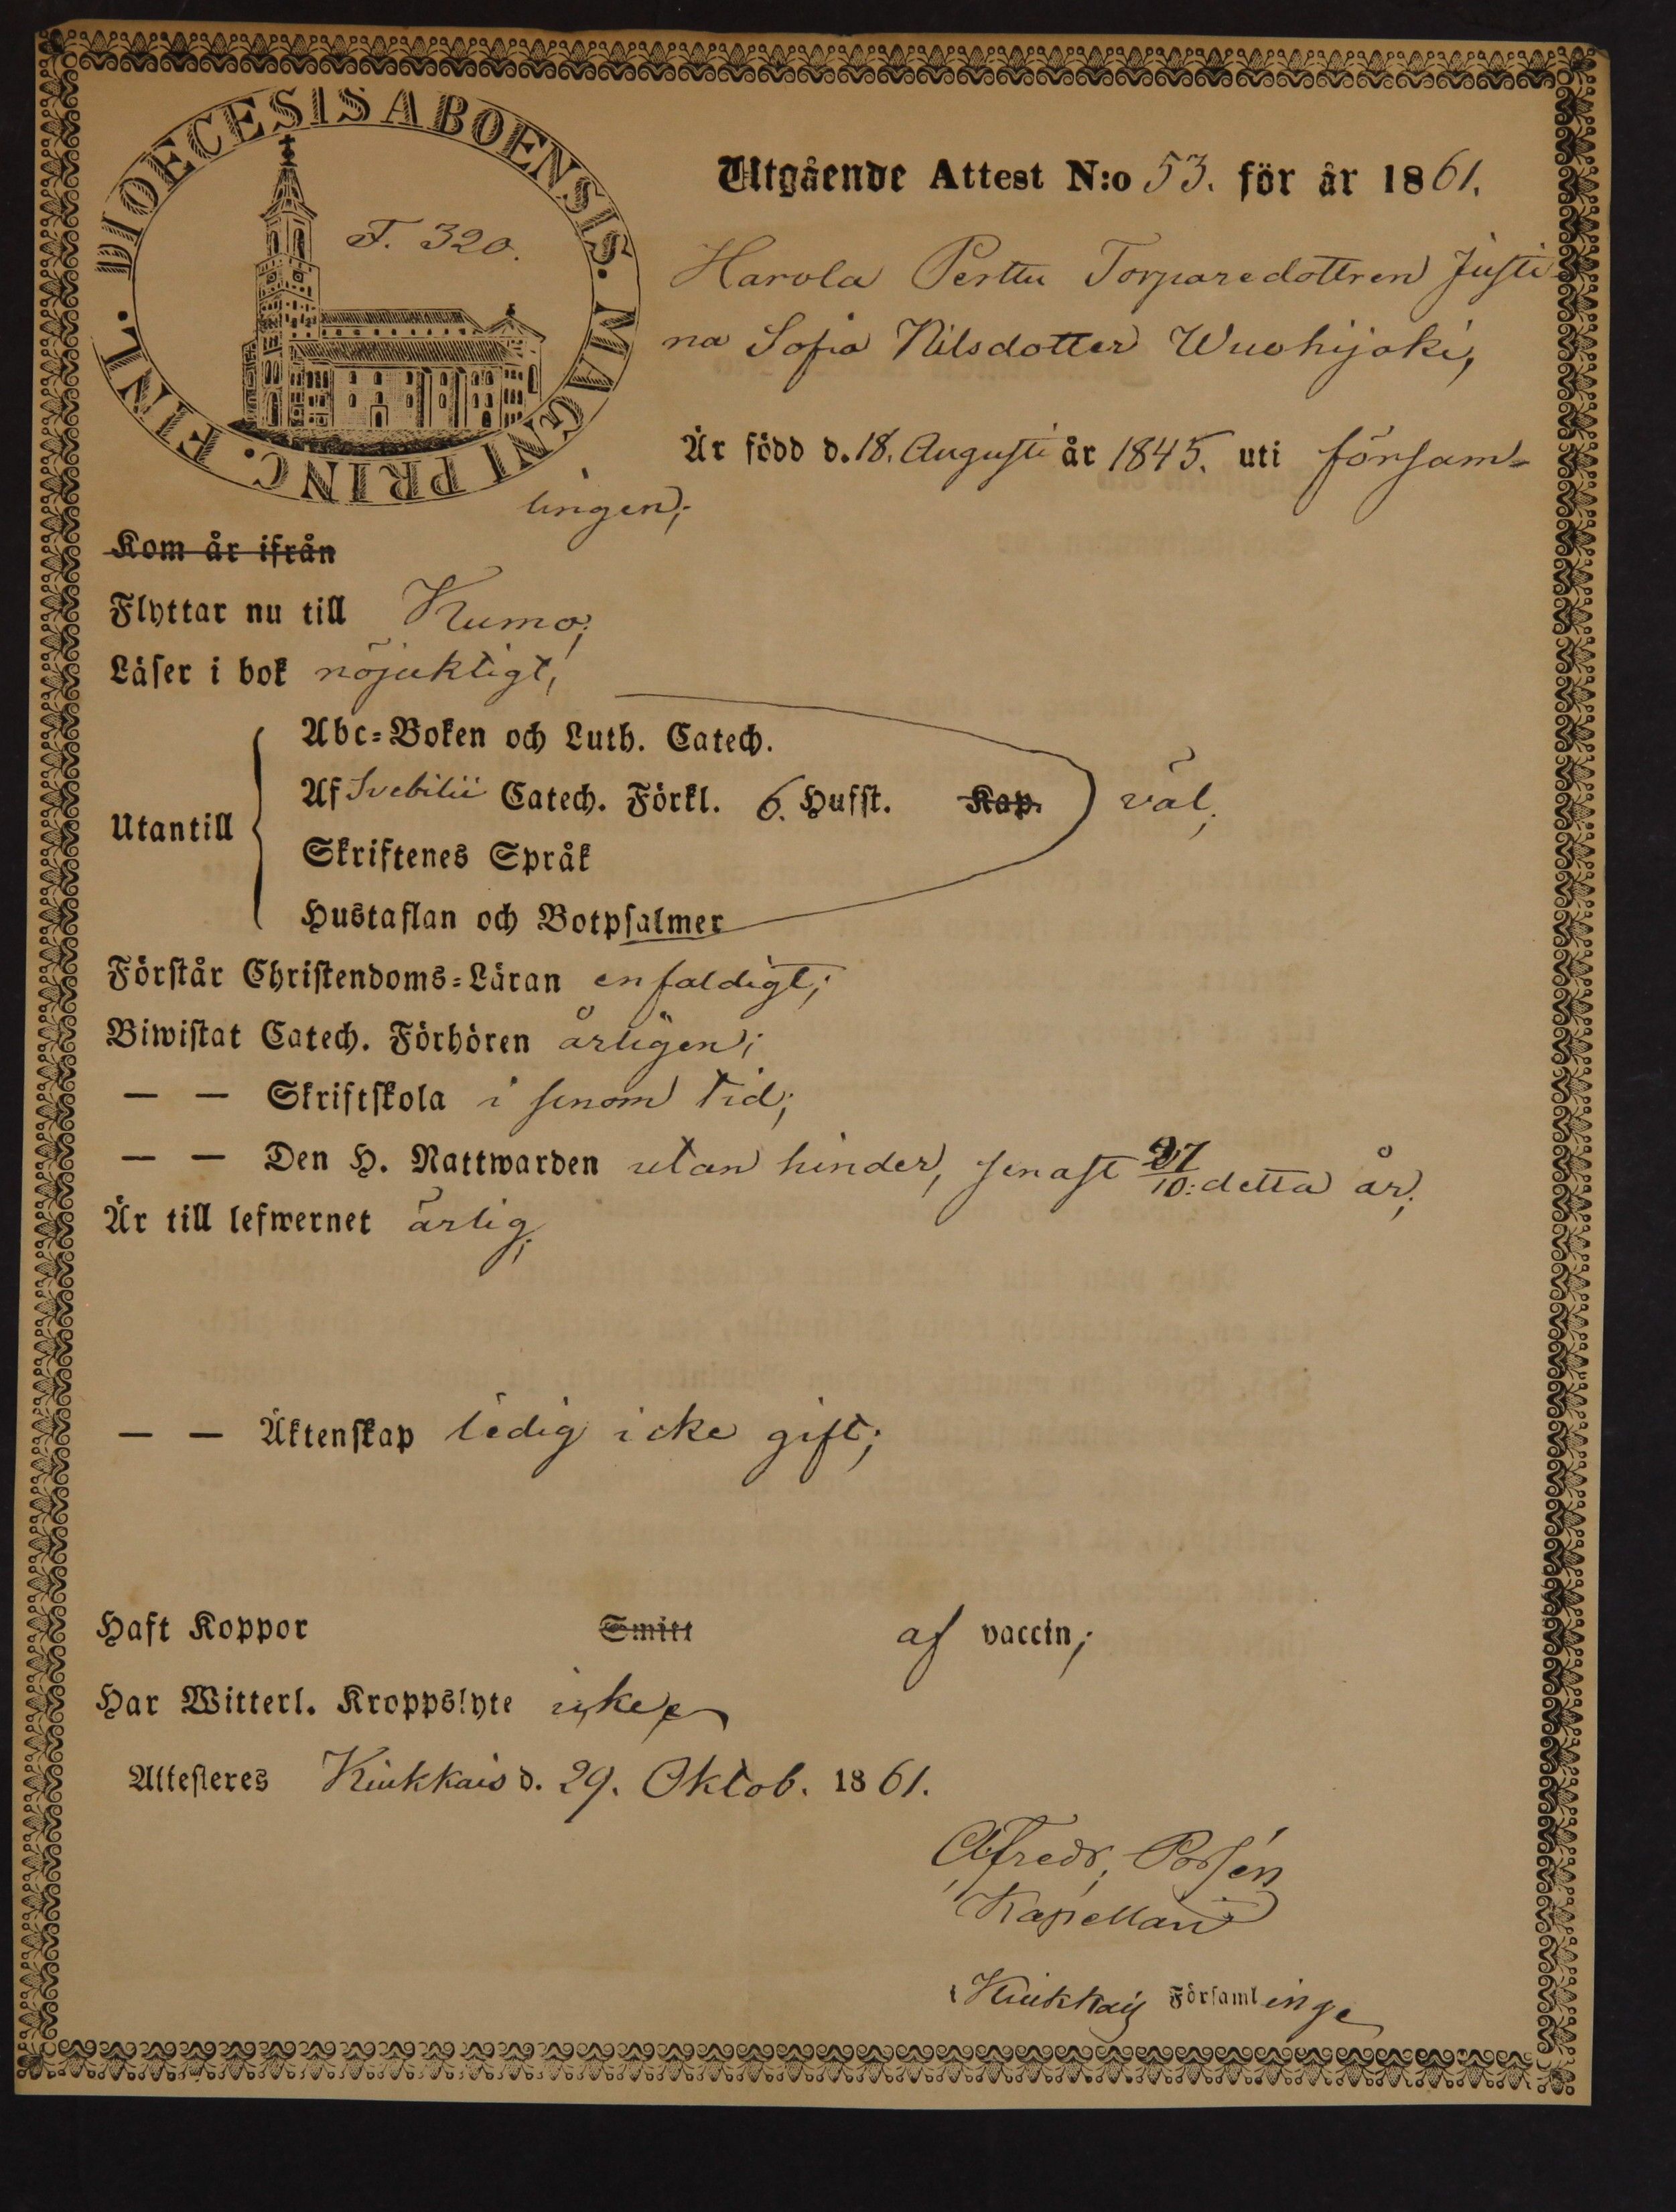 DIOECESIS ABOENSIS. MAGNI PRINC. FINL.
F. 320.
Utgående Attest N:o 53. för år 1861.
Harola Perttu Torparedottren Justi-
na Sofia Nilsdotter Wuohijoki,
Är född d. 18. Augusti år 1845. uti försam-
lingen;
Kom år ifrån
Flyttar nu till Kumo;
Läser i bok nöjaktigt,
Utantill
Abc-Boken och Luth. Catech.
Af Svebilii Catech. Förkl. 6. Hufst. Kap. väl;
Skriftenes Språk
Hustaflan och Botpsalmer
Förstår Christendoms-Läran enfaldigt;
Biwistat Catech. Förhören årligen;
— — Skriftskola i senom tid;
— — Den H. Nattwarden utan hinder, senast 27/10: detta år;
Är till lefwernet ärlig;
— — Äktenskap ledig icke gift;
Haft Koppor Smitt af vaccin;
Har Witterl. Kroppslyte icke
Attesteres Kiukkais d. 29. Oktob. 1861.
Alfredr. Porsén
Kapellan
i Kiukkais Församlinge